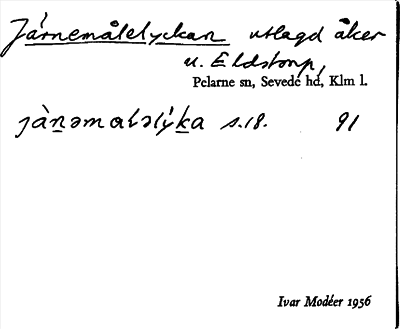 Járnemålslyckan utlagd åker
u. Eldstorp,
Pelarne sn, Sevede hd, Klm l.
jànəmaləlýka s.18. 91
Ivar Modéer 1956